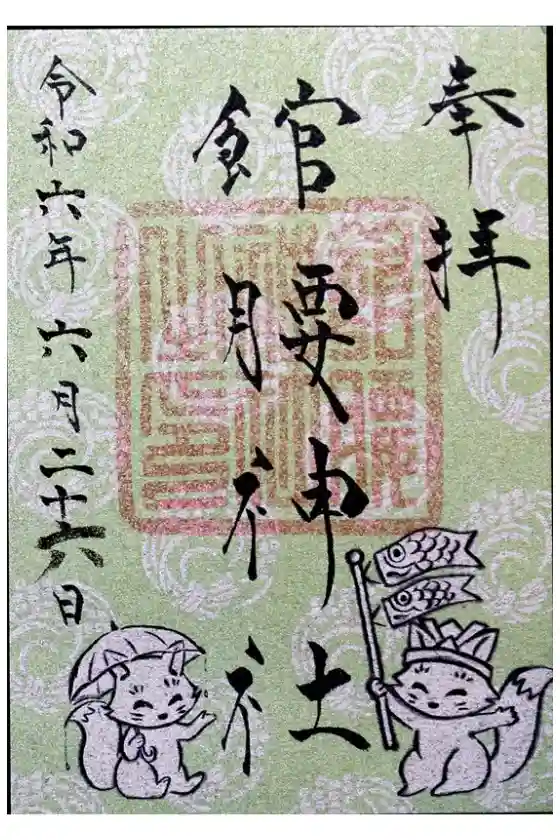 奉拝
館腰神社
令和六年六月二十六日